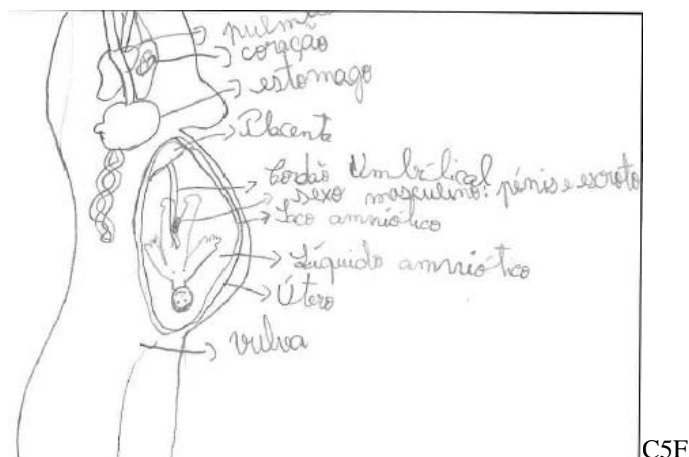 pulmão
coração
estomago
Placenta
Cordão Umbilical
sexo masculino: pénis e escroto
Saco amniótico
Líquido amniótico
Útero
vulva
C5F